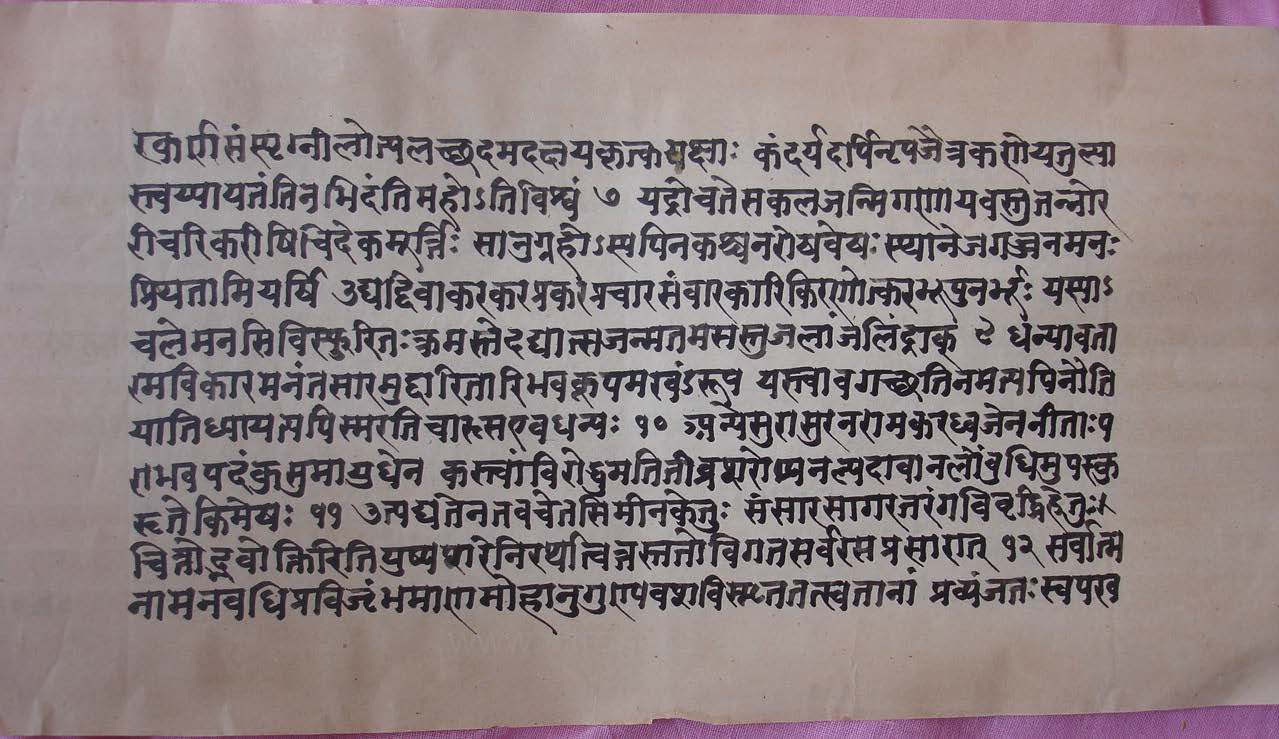 रकर्णसंस्पृग्नीलोत्पलच्छदमदल्लय कंदर्पदर्पिनृपजैत्रकरणेयतुल्या
स्त्वय्यायतंतिनभिदंतिमहोऽतिविश्वं ७ यद्रोचतेसकलजन्मिगणायवस्तुतन्नोर
रीचरिकरीषिचिदेकमूर्त्तिः सानुग्रहोऽस्यपिनकश्चनरोष्यवेद्यः स्थानेजगज्जनमनः
प्रियतामियर्षि उद्यद्दिवाकरकरप्रकरप्रचारसंचारकारिकिरणोत्करभूपुनर्भूः यस्याऽ
चलेमनसिविस्फुरितःक्रमस्तेदद्यात्सजन्मतमसस्तुजलांजलिंद्राक् ९ धन्यावता
रमविकारमनंतसारमुद्दारितारिभवकूपमखंडरूप यस्त्वावगच्छतिनमत्यपिनौति
यातिध्यायत्यपिस्मरतिचारुसएवधन्यः १० अन्येसुरासुरनरामकरध्वजेननीताःप
राभवपदंकुसुमायुधेन कस्त्वांविरोद्धुमतितीव्रशरोप्यनल्पदावानलोंबुधिमुपस्कु
रुतेकिमेयः ११ उत्पद्यतेनतवचेतसिमीनकेतुः संसारसागरतरंगविवृद्धिहेतुः।
चित्तोद्भवोक्तिरितिपुष्पशरेनिरर्थात्विन्नस्ततोविगतसर्वरसप्रसारात् १२ सर्वात्म
नामनवधिप्रविजृंभमाणमोहानुगुण्यवशविस्मृततत्त्वतानां प्रव्यंजतःस्वपरव